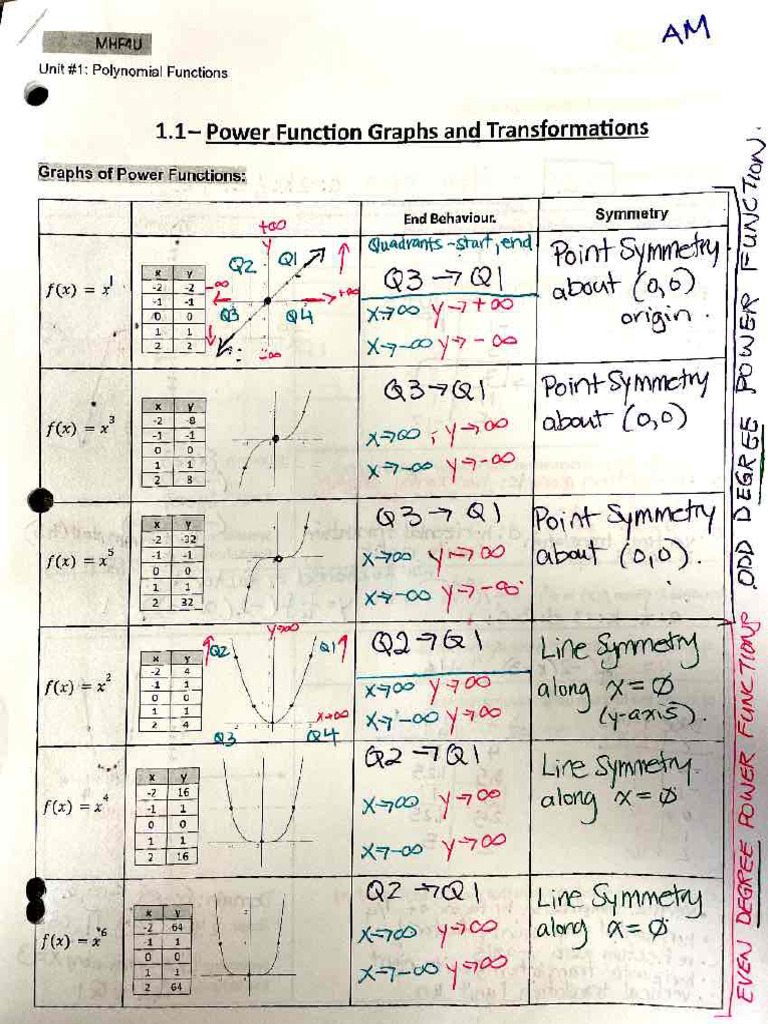 AM
MHF4U
Unit #1: Polynomial Functions
1.1– Power Function Graphs and Transformations
Graphs of Power Functions:
End Behaviour.
Symmetry
f(x) = x¹
x y
-2 -2
-1 -1
0 0
1 1
2 2
+∞
y
Q2 Q1
-∞ +∞
Q3 Q4
-∞
Quadrants - start, end
Q3 → Q1
x→∞ y→+∞
x→-∞ y→-∞
Point Symmetry
about (0,0)
origin.
f(x) = x³
x y
-2 -8
-1 -1
0 0
1 1
2 8
Q3→Q1
x→∞, y→∞
x→-∞ y→-∞
Point Symmetry
about (0,0)
f(x) = x⁵
x y
-2 -32
-1 -1
0 0
1 1
2 32
Q3 → Q1
x→∞ y→∞
x→-∞ y→-∞
Point Symmetry
about (0,0).
f(x) = x²
x y
-2 4
-1 1
0 0
1 1
2 4
y→∞
Q2 Q1
x→∞
Q3 Q4
Q2→Q1
x→∞ y→∞
x→-∞ y→∞
Line Symmetry
along x=0
(y-axis).
f(x) = x⁴
x y
-2 16
-1 1
0 0
1 1
2 16
Q2 →Q1
x→∞ y→∞
x→-∞ y→∞
Line Symmetry
along x=0
f(x) = x⁶
x y
-2 64
-1 1
0 0
1 1
2 64
Q2 →Q1
x→∞ y→∞
x→-∞ y→∞
Line Symmetry
along x=0
ODD DEGREE POWER FUNCTION.
EVEN DEGREE POWER FUNCTIONS